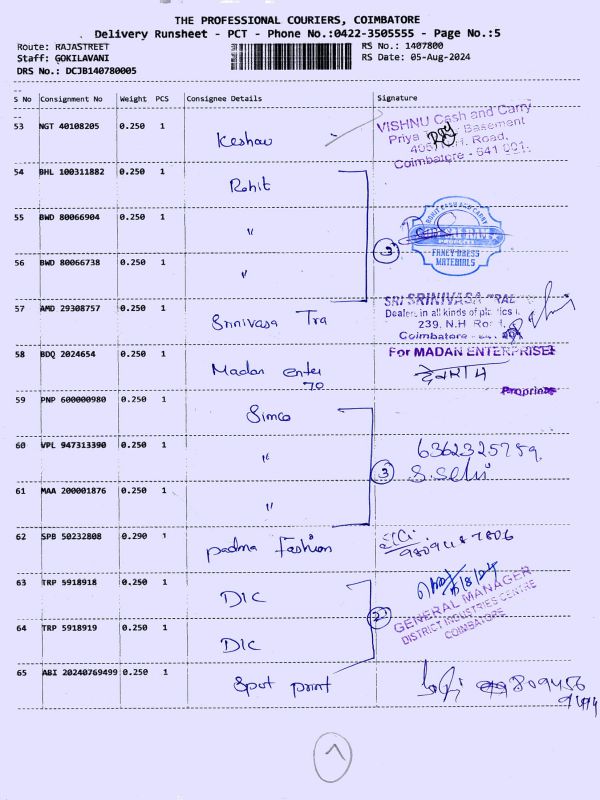 THE PROFESSIONAL COURIERS, COIMBATORE
Delivery Runsheet - PCT - Phone No.:0422-3505555 - Page No.:5
Route: RAJASTREET RS No.: 1407800
Staff: GOKILAVANI RS Date: 05-Aug-2024
DRS No.: DCJB140780005
S No Consignment No Weight PCS Consignee Details Signature
53 NGT 40108205 0.250 1 Keshav
VISHNU Cash and Carry
Priya Basement
405, N.H. Road,
Coimbatore - 641 001.
54 BHL 100311882 0.250 1 Rohit
55 BWD 80066904 0.250 1 "
56 BWD 80066738 0.250 1 "
3
ROHIT CASH AND CARRY
FANCY DRESS
MATERIALS
57 AMD 29308757 0.250 1 Srinivasa Tra
SRI SRINIVASA TRAD
Dealers in all kinds of plastics
239, N.H Road,
Coimbatore - 641 001
58 BDQ 2024654 0.250 1 Madan enter
70
For MADAN ENTERPRISES
देवाराम
Proprietor
59 PNP 600000980 0.250 1 Simco
60 VPL 947313390 0.250 1 "
61 MAA 200001876 0.250 1 "
3
6362325759
S.Selvi
62 SPB 50232808 0.290 1 padma Fashion
63 TRP 5918918 0.250 1 DIC
64 TRP 5918919 0.250 1 DIC
2
GENERAL MANAGER
DISTRICT INDUSTRIES CENTRE
COIMBATORE
65 ABI 20240769499 0.250 1 Spot print